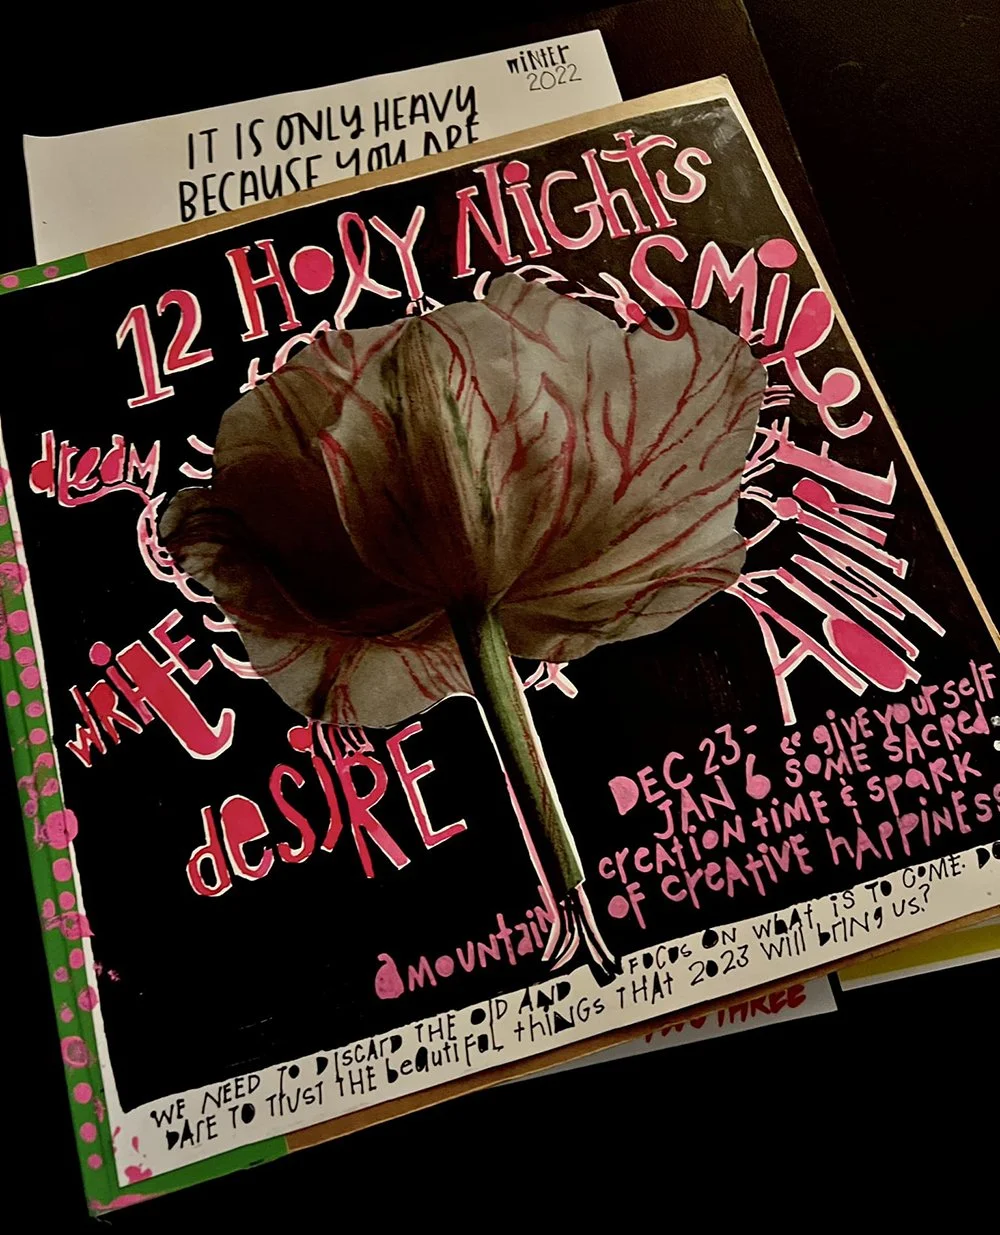 WINTER
2022
IT IS ONLY HEAVY
BECAUSE YOU ARE
12 HOLY NIGHTS
SMILE
dream
ADMIRE
WRITE
desIRE
DEC 23-
JAN 6
"give yourself
SOME SACRED
creation time & spark
OF creative happiness
a mountain
WE NEED TO DISCARD THE OLD AND FOCUS ON WHAT IS TO COME. DO
DARE TO TRUST THE beautiful things THAT 2023 WILL bring us?
THREE